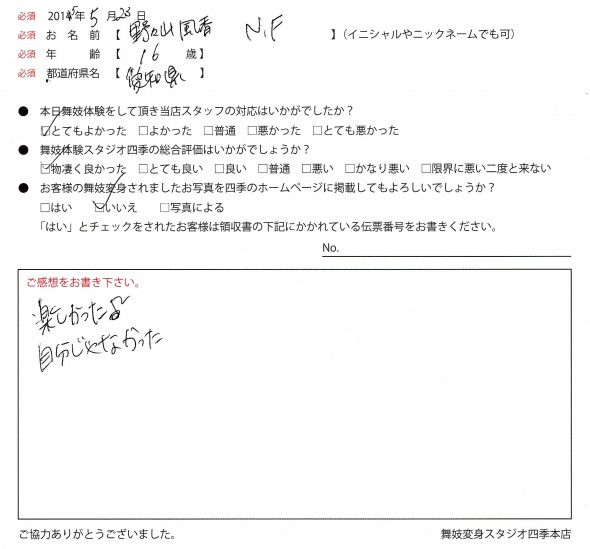 必須 2015年 5月 23日
必須 お名前【 野々山 風香 N.F 】(イニシャルやニックネームでも可)
必須 年齢【 16 歳】
必須 都道府県名【 愛知県 】
● 本日舞妓体験をして頂き当店スタッフの対応はいかがでしたか?
☑とてもよかった □よかった □普通 □悪かった □とても悪かった
● 舞妓体験スタジオ四季の総合評価はいかがでしょうか?
☑物凄く良かった □とても良い □良い □普通 □悪い □かなり悪い □限界に悪い二度と来ない
● お客様の舞妓変身されましたお写真を四季のホームページに掲載してもよろしいでしょうか?
□はい ☑いいえ □写真による
「はい」とチェックをされたお客様は領収書の下記にかかれている伝票番号をお書きください。
No.
ご感想をお書き下さい。
楽しかった♪
自分じゃなかった
ご協力ありがとうございました。 舞妓変身スタジオ四季本店